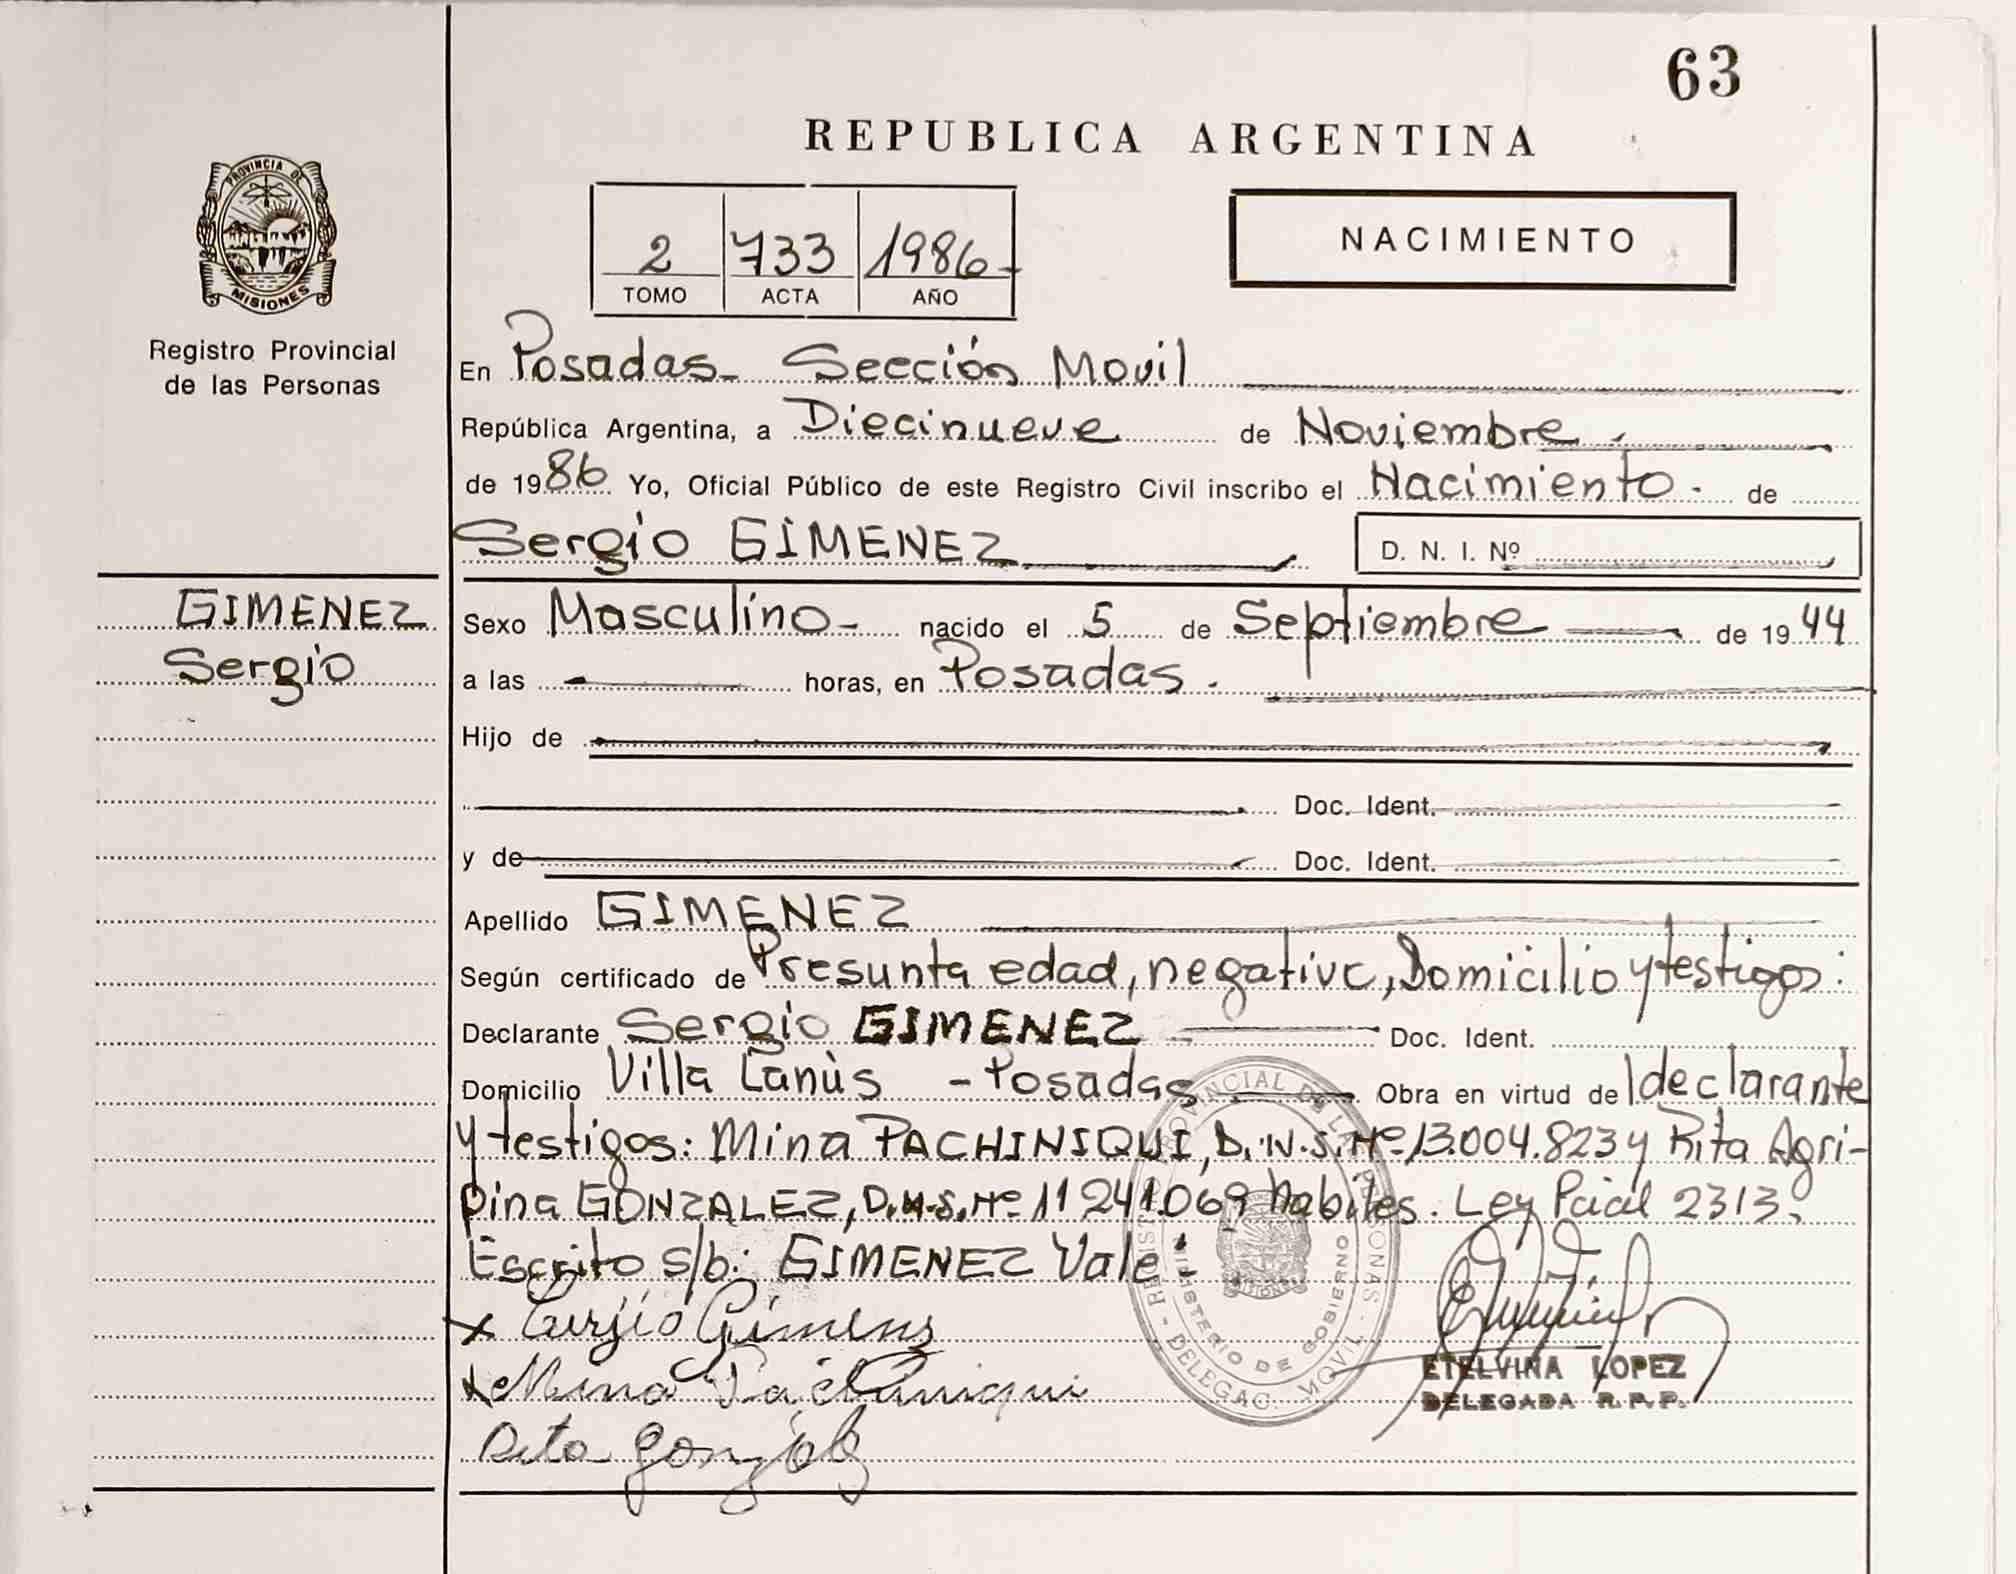 63
REPUBLICA ARGENTINA
PROVINCIA DE
MISIONES
Registro Provincial
de las Personas
2 733 1986
TOMO ACTA AÑO
NACIMIENTO
En Posadas - Sección Movil
República Argentina, a Diecinueve de Noviembre
de 1986 Yo, Oficial Público de este Registro Civil inscribo el Nacimiento. de
Sergio GIMENEZ D. N. I. Nº
GIMENEZ
Sergio
Sexo Masculino - nacido el 5 de Septiembre de 1944
a las horas, en Posadas.
Hijo de
Doc. Ident.
y de Doc. Ident.
Apellido GIMENEZ
Según certificado de Presunta edad, negativo, Domicilio y testigos:
Declarante Sergio GIMENEZ Doc. Ident.
Domicilio Villa Lanùs - Posadas Obra en virtud de declarante
y testigos: Mina PACHINIQUI, D.N.I. Nº 13.004.823 y Rita Agri-
pina GONZALEZ, D.N.I. Nº 11 241.069 habiles. Ley Pcial 2313.
Escrito s/b: GIMENEZ Vale.
x Serjio Gimens
x Mina Pachiniqui
Rita Gonzalez
REGISTRO PROVINCIAL DE LAS PERSONAS - DELEGAC. MOVIL -
MINISTERIO DE GOBIERNO
ETELVINA LOPEZ
DELEGADA R.P.P.